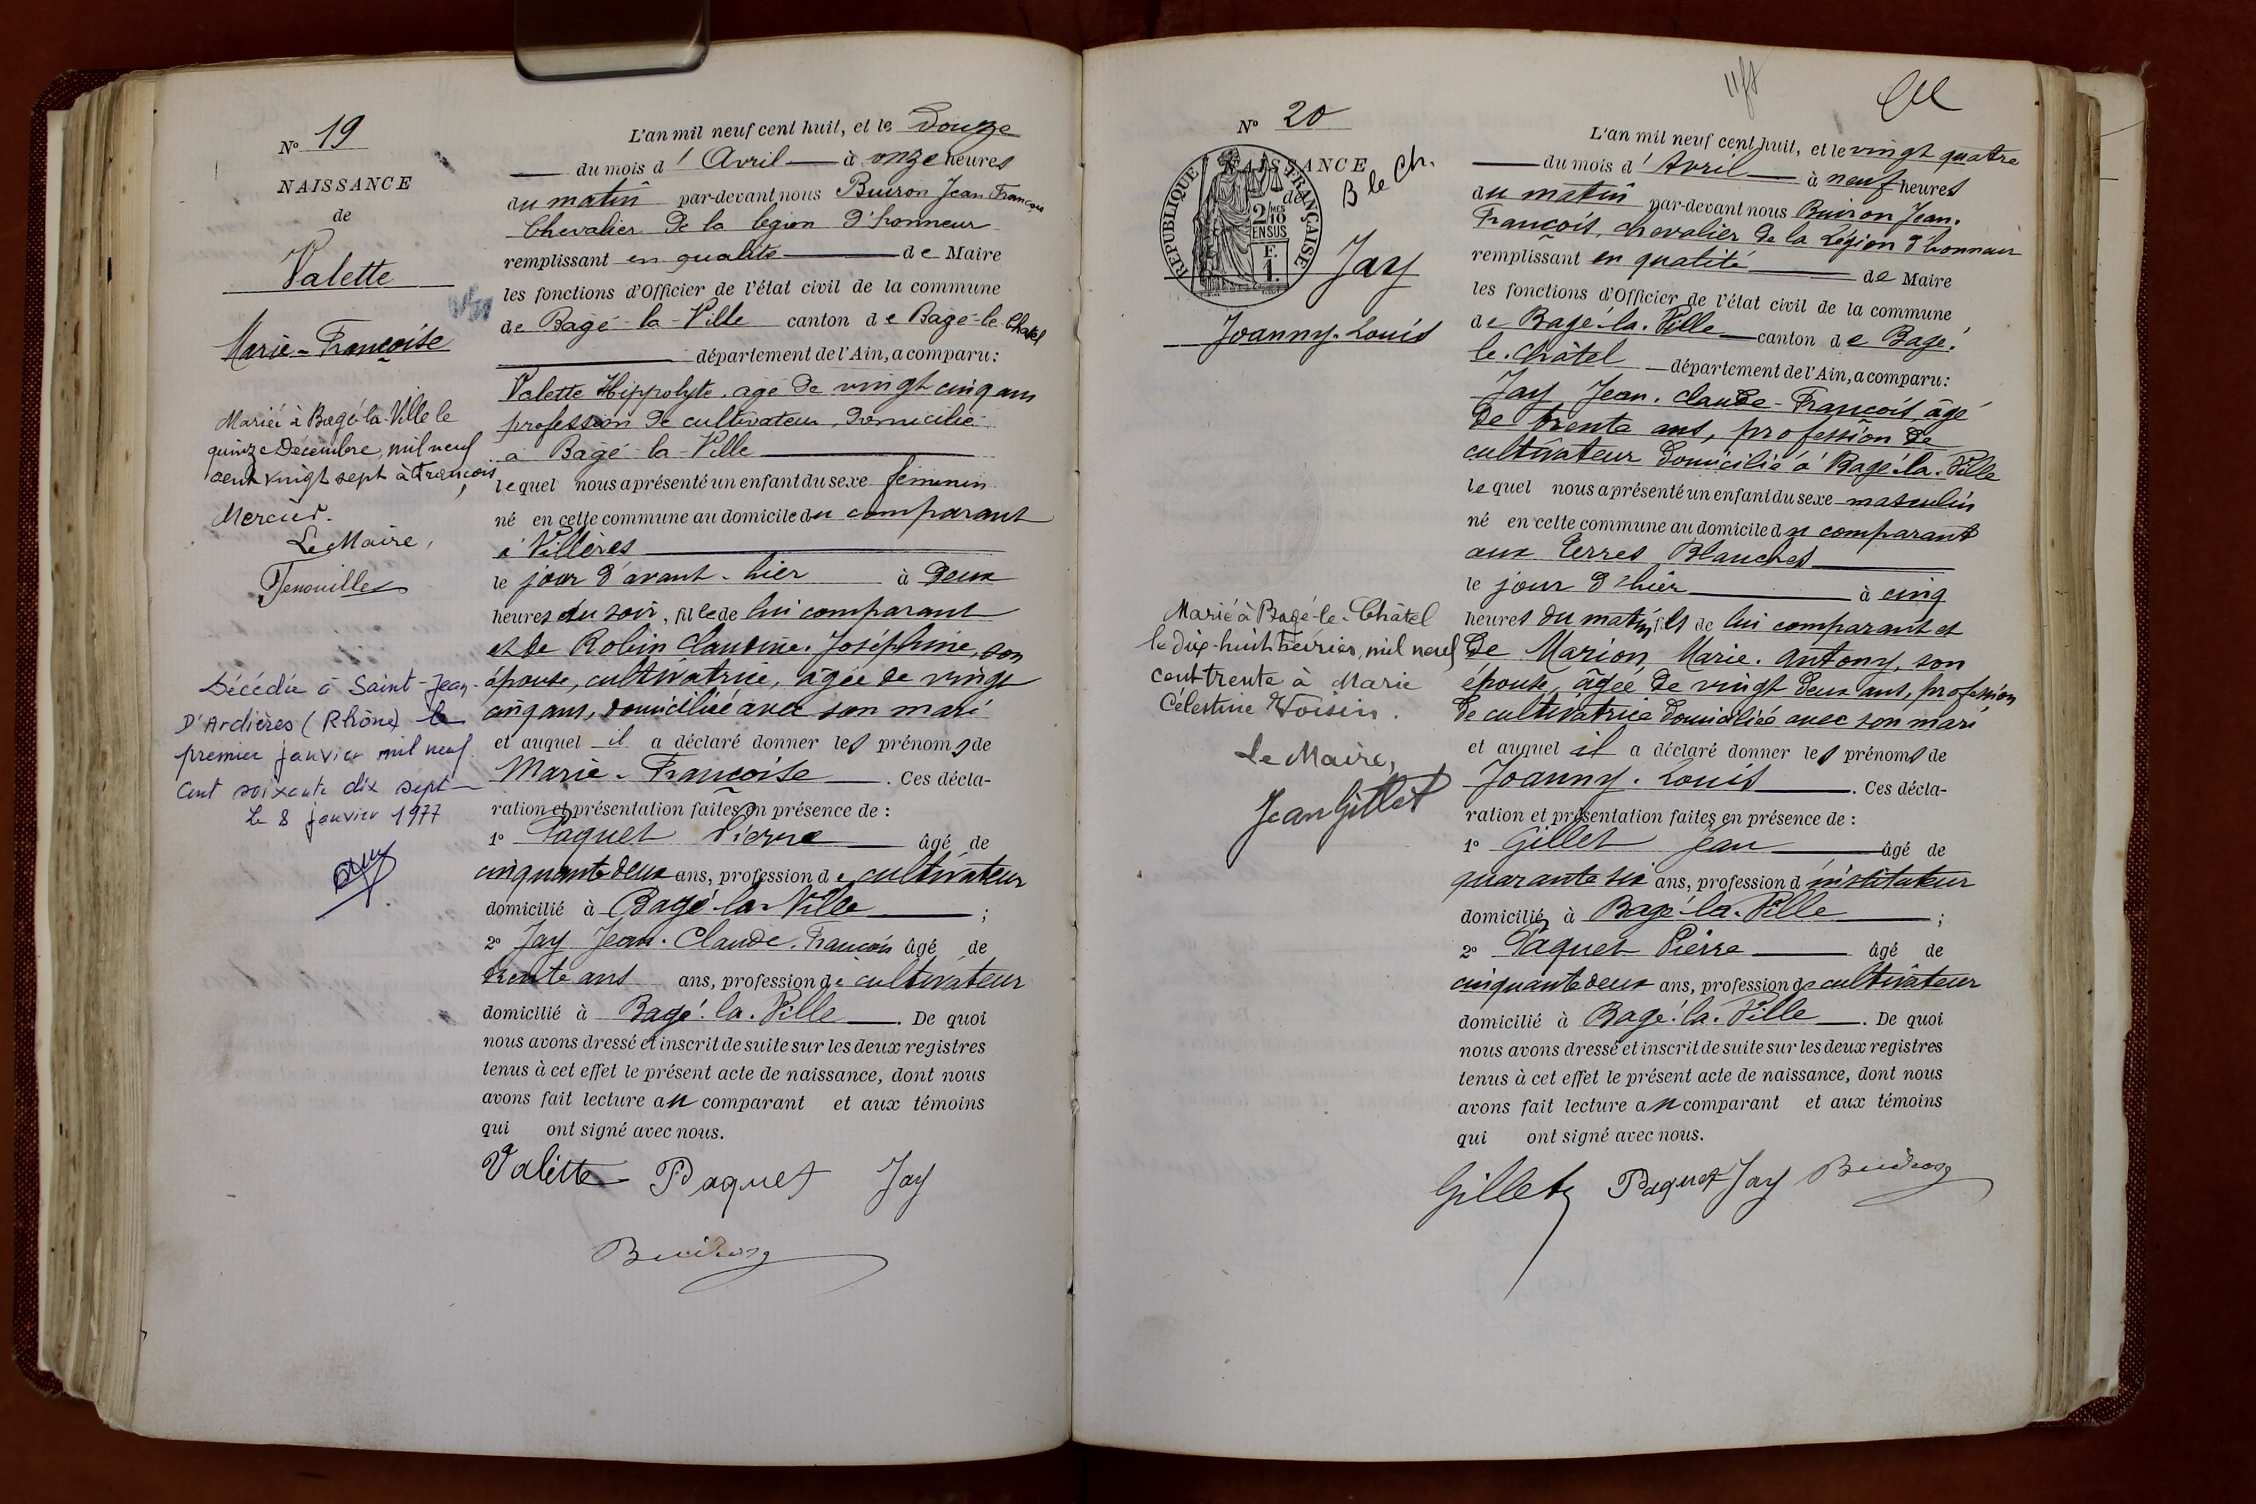 N° 19
NAISSANCE
de
Valette
Marie-Françoise
Mariée à Bagé-la-Ville le
quinze Décembre, mil neuf
cent vingt sept à François
Mercier.
Le Maire,
Décédée à Saint-Jean-
D'Ardières (Rhône) le
premier janvier mil neuf
Cent soixante dix sept
Le 8 janvier 1977
L'an mil neuf cent huit, et le Douze
du mois d'Avril à onze heures
du matin par-devant nous Buiron Jean François
Chevalier De la légion D'honneur
remplissant en qualité de Maire
les fonctions d'Officier de l'état civil de la commune
de Bagé-la-Ville canton de Bagé-le-Chatel
département de l'Ain, a comparu:
Valette Hippolyte, agé De vingt cinq ans
profession De cultivateur, Domicilié
à Bagé-la-Ville
lequel nous a présenté un enfant du sexe féminin
né en cette commune au domicile du comparant
à Villères
le jour D'avant-hier à Deux
heures du soir, fille de lui comparant
et De Robin Claudine-Joséphine, son
épouse, cultivatrice, âgée de vingt
cinq ans, domiciliée avec son mari
et auquel il a déclaré donner les prénoms de
Marie-Françoise. Ces décla-
ration et présentation faites en présence de :
1° Paquet Pierre âgé de
cinquante deux ans, profession de cultivateur
domicilié à Bagé-la-Ville ;
2° Jay Jean-Claude-François âgé de
trente ans ans, profession de cultivateur
domicilié à Bagé-la-Ville. De quoi
nous avons dressé et inscrit de suite sur les deux registres
tenus à cet effet le présent acte de naissance, dont nous
avons fait lecture au comparant et aux témoins
qui ont signé avec nous.
Valette Paquet Jay
Buiron
N° 20
NAISSANCE
de
B le Ch.
RÉPUBLIQUE FRANÇAISE
2/10 MES
EN SUS
F.
1.
Jay
Joanny-Louis
Marié à Bagé-le-Châtel
le dix-huit Février, mil neuf
cent trente à Marie
Célestine Voisin.
Le Maire,
Jean Gillet
L'an mil neuf cent huit, et le vingt quatre
du mois d'Avril à neuf heures
du matin par-devant nous Buiron Jean-
François, chevalier De la Légion D'honneur
remplissant en qualité de Maire
les fonctions d'Officier de l'état civil de la commune
de Bagé-la-Ville canton de Bagé-
le-Châtel département de l'Ain, a comparu:
Jay Jean-Claude-François âgé
De trente ans, profession De
cultivateur Domicilié à Bagé-la-Ville
lequel nous a présenté un enfant du sexe masculin
né en cette commune au domicile du comparant
aux Terres Blanches
le jour D'hier à cinq
heures Du matin, fils de lui comparant et
De Marion Marie-Antony, son
épouse, âgée De vingt Deux ans, profession
De cultivatrice Domiciliée avec son mari
et auquel il a déclaré donner les prénoms de
Joanny-Louis. Ces décla-
ration et présentation faites en présence de :
1° Gillet Jean âgé de
quarante six ans, profession d'instituteur
domicilié à Bagé-la-Ville ;
2° Paquet Pierre âgé de
cinquante deux ans, profession de cultivateur
domicilié à Bagé-la-Ville. De quoi
nous avons dressé et inscrit de suite sur les deux registres
tenus à cet effet le présent acte de naissance, dont nous
avons fait lecture au comparant et aux témoins
qui ont signé avec nous.
Gillet Paquet Jay Buiron